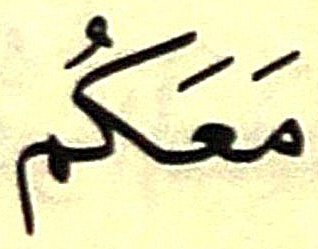 مَعَكُم